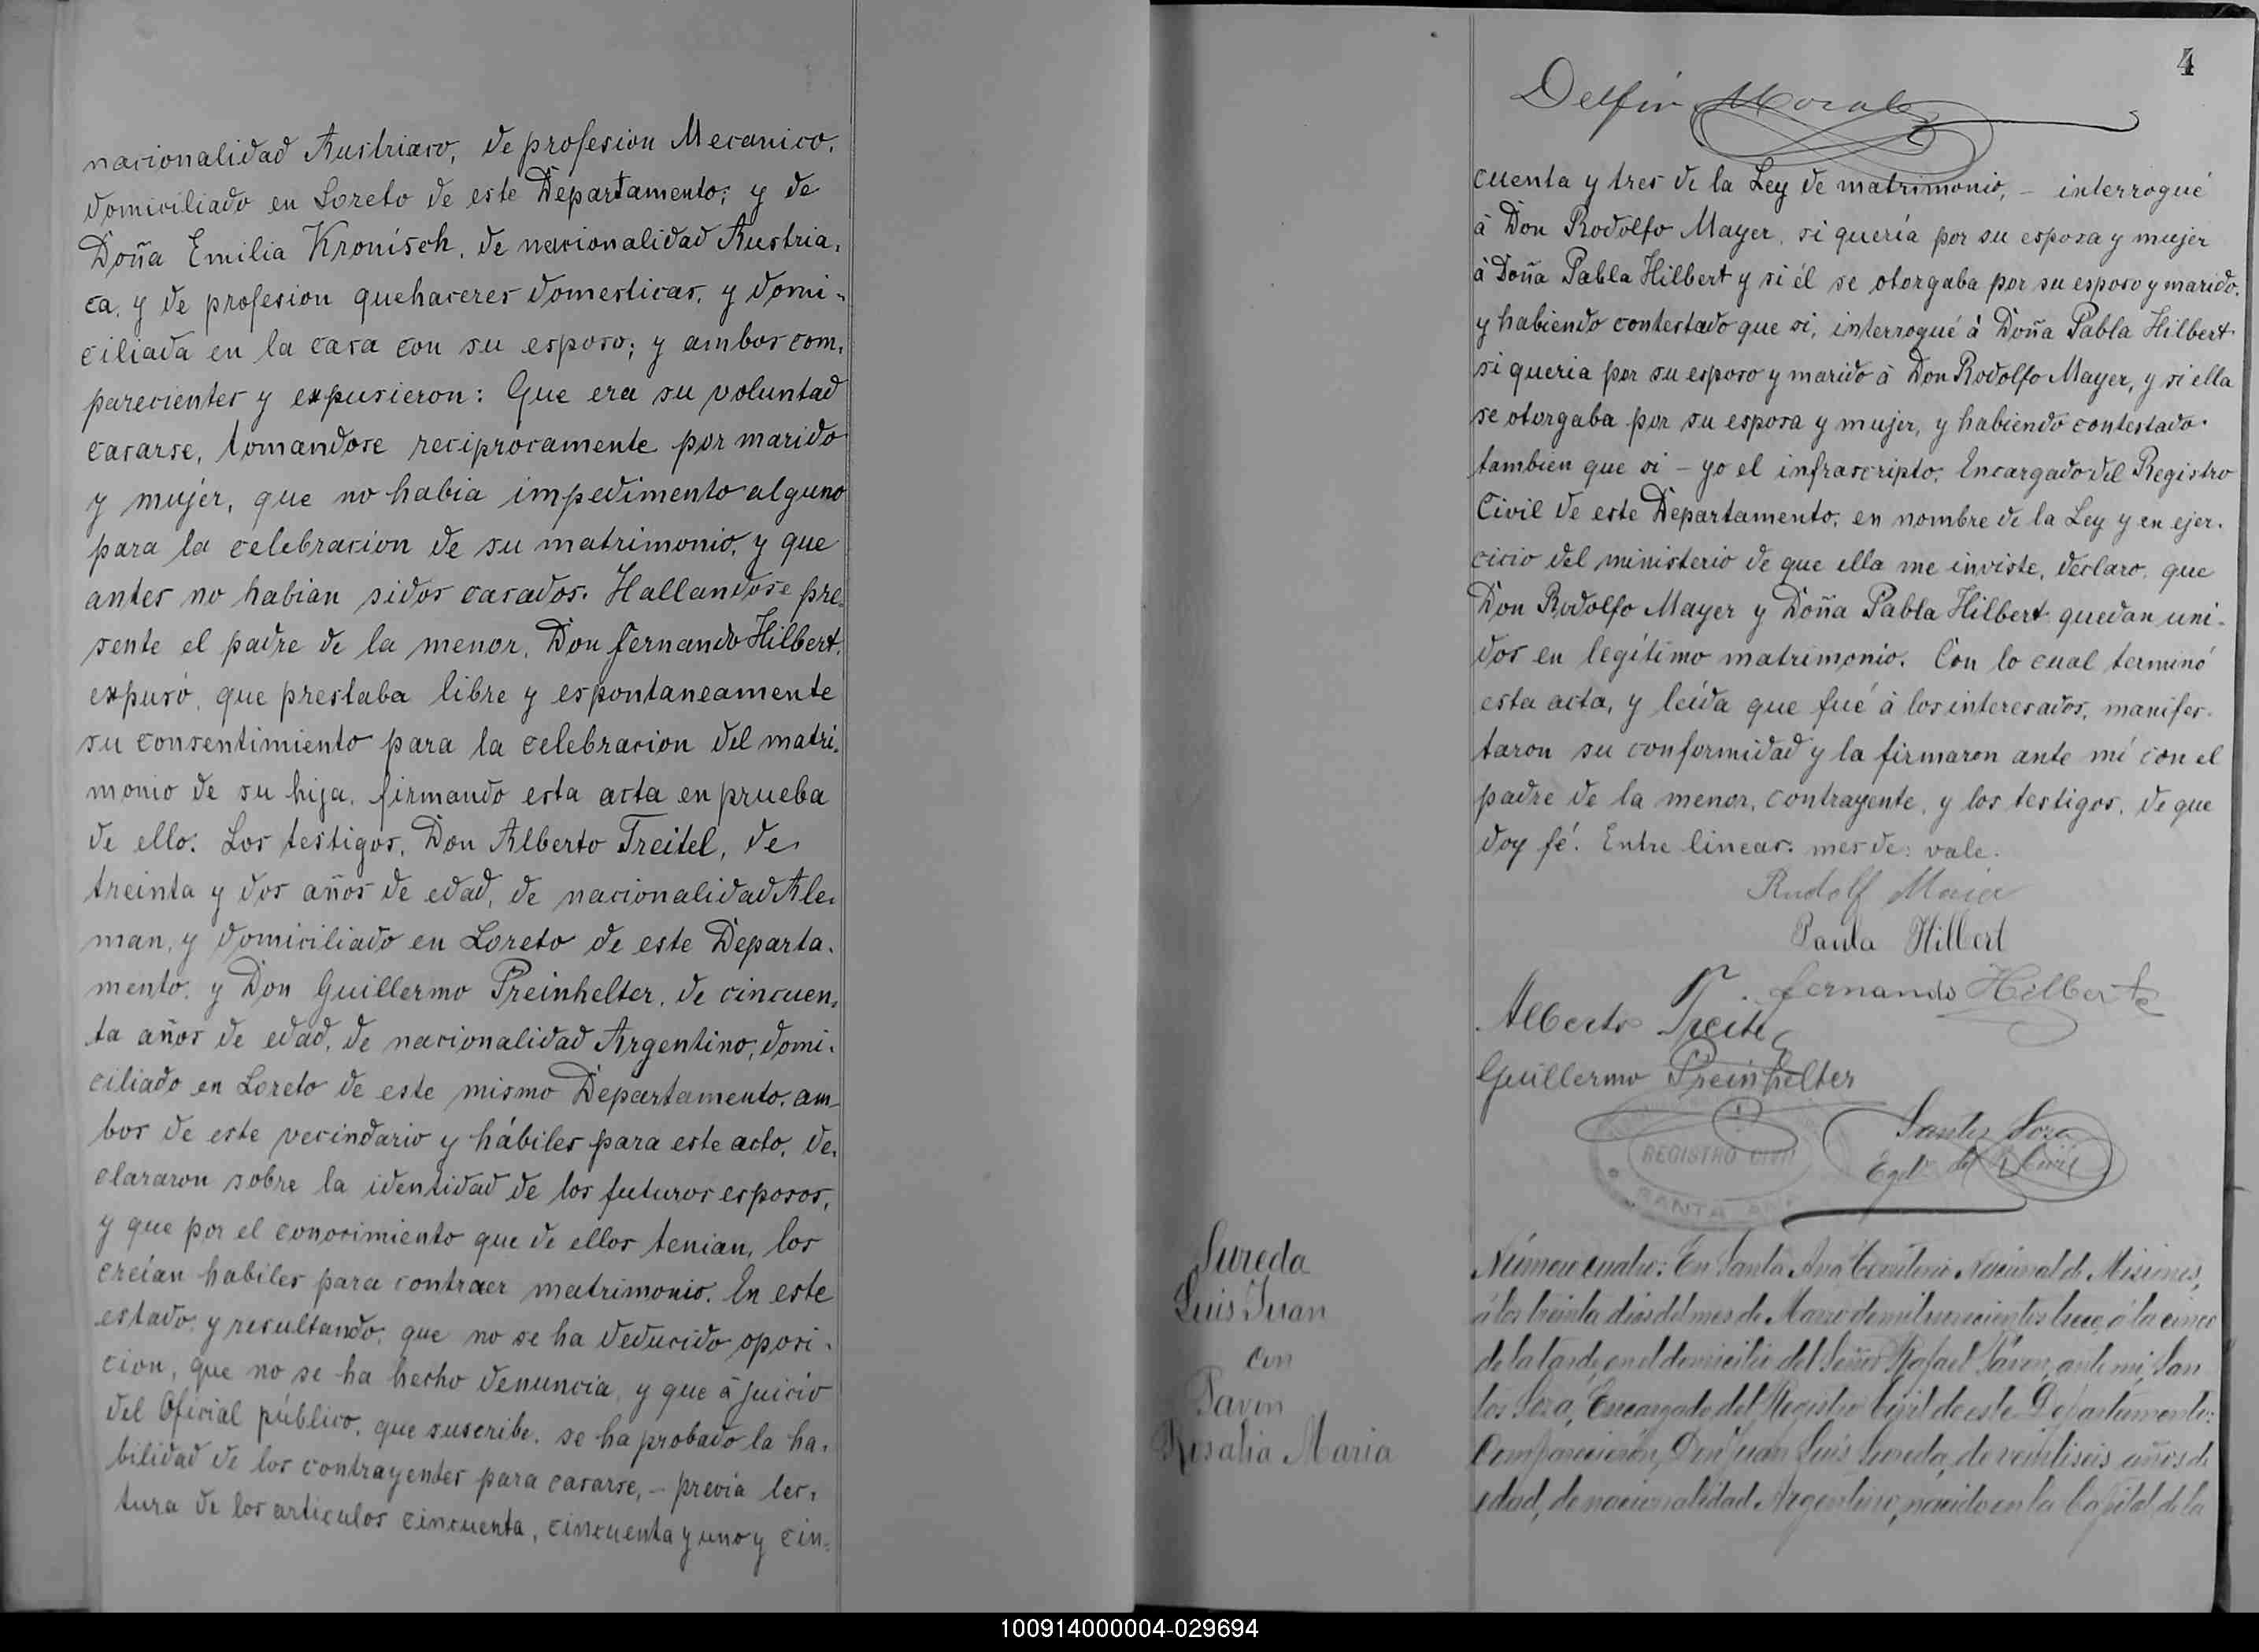 nacionalidad Austriaco, de profesion Mecanico,
domiciliado en Loreto de este Departamento; y de
Doña Emilia Kronisch, de nacionalidad Austria,
ca, y de profesion quehaceres domesticas, y domi-
ciliada en la casa con su esposo; y ambos com,
parecientes y expusieron: Que era su voluntad
casarse, tomandose reciprocamente por marido
y mujer, que no habia impedimento alguno
para la celebracion de su matrimonio, y que
antes no habian sidos casados. Hallandose pre,
sente el padre de la menor, Don Fernando Hilbert,
expusó, que prestaba libre y espontaneamente
su consentimiento para la celebracion del matri,
monio de su hija, firmando esta acta en prueba
de ello. Los testigos, Don Alberto Treitel, de
treinta y dos años de edad, de nacionalidad Ale,
man, y domiciliado en Loreto de este Departa,
mento, y Don Guillermo Preinhelter, de cincuen,
ta años de edad, de nacionalidad Argentino, domi,
ciliado en Loreto de este mismo Departamento, am-
bos de este vecindario y hábiles para este acto, de,
clararon sobre la identidad de los futuros esposos,
y que por el conocimiento que de ellos tenian, los
creían habiles para contraer matrimonio. En este
estado, y resultando, que no se ha deducido oposi-
cion, que no se ha hecho denuncia, y que á juicio
del Oficial público, que suscribe, se ha probado la ha,
bilidad de los contrayentes para casarse, - previa lec,
tura de los articulos cincuenta, cincuenta y uno y cin-
4
Delfin Morales
cuenta y tres de la Ley de matrimonio, - interrogué
á Don Rodolfo Mayer, si quería por su esposa y mujer
á Doña Pabla Hilbert y si él se otorgaba por su esposo y marido,
y habiendo contestado que si, interrogué á Doña Pabla Hilbert
si queria por su esposo y marido á Don Rodolfo Mayer, y si ella
se otorgaba por su esposa y mujer, y habiendo contestado
tambien que si - yo el infrascripto, Encargado del Registro
Civil de este Departamento, en nombre de la Ley y en ejer-
cicio del ministerio de que ella me inviste, declaro, que
Don Rodolfo Mayer y Doña Pabla Hilbert quedan uni-
dos en legítimo matrimonio. Con lo cual terminó
esta acta, y leída que fué á los interesados, manifes-
taron su conformidad y la firmaron ante mí con el
padre de la menor, contrayente, y los testigos, de que
doy fé. Entre lineas: mes de: vale.
Rudolf Maier
Paula Hilbert
Fernando Hilbert
Alberto Treitel
Guillermo Preinhelter
Santos Soza
Egdo del R. Civil
REGISTRO CIVIL
SANTA ANA
Sureda
Luis Juan
con
Pavon
Rosalia Maria
Número cuatro: En Santa Ana Territorio Nacional de Misiones,
á los treinta dias del mes de Marzo de mil novecientos trece, á la cinco
de la tarde, en el domicilio del Señor Rafael Pavon, ante mi, San
tos Soza, Encargado del Registro Civil de este Departamento:
Comparecieron, Don Juan Luis Sureda, de veintiseis años de
edad, de nacionalidad Argentino, nacido en la Capital de la
100914000004-029694